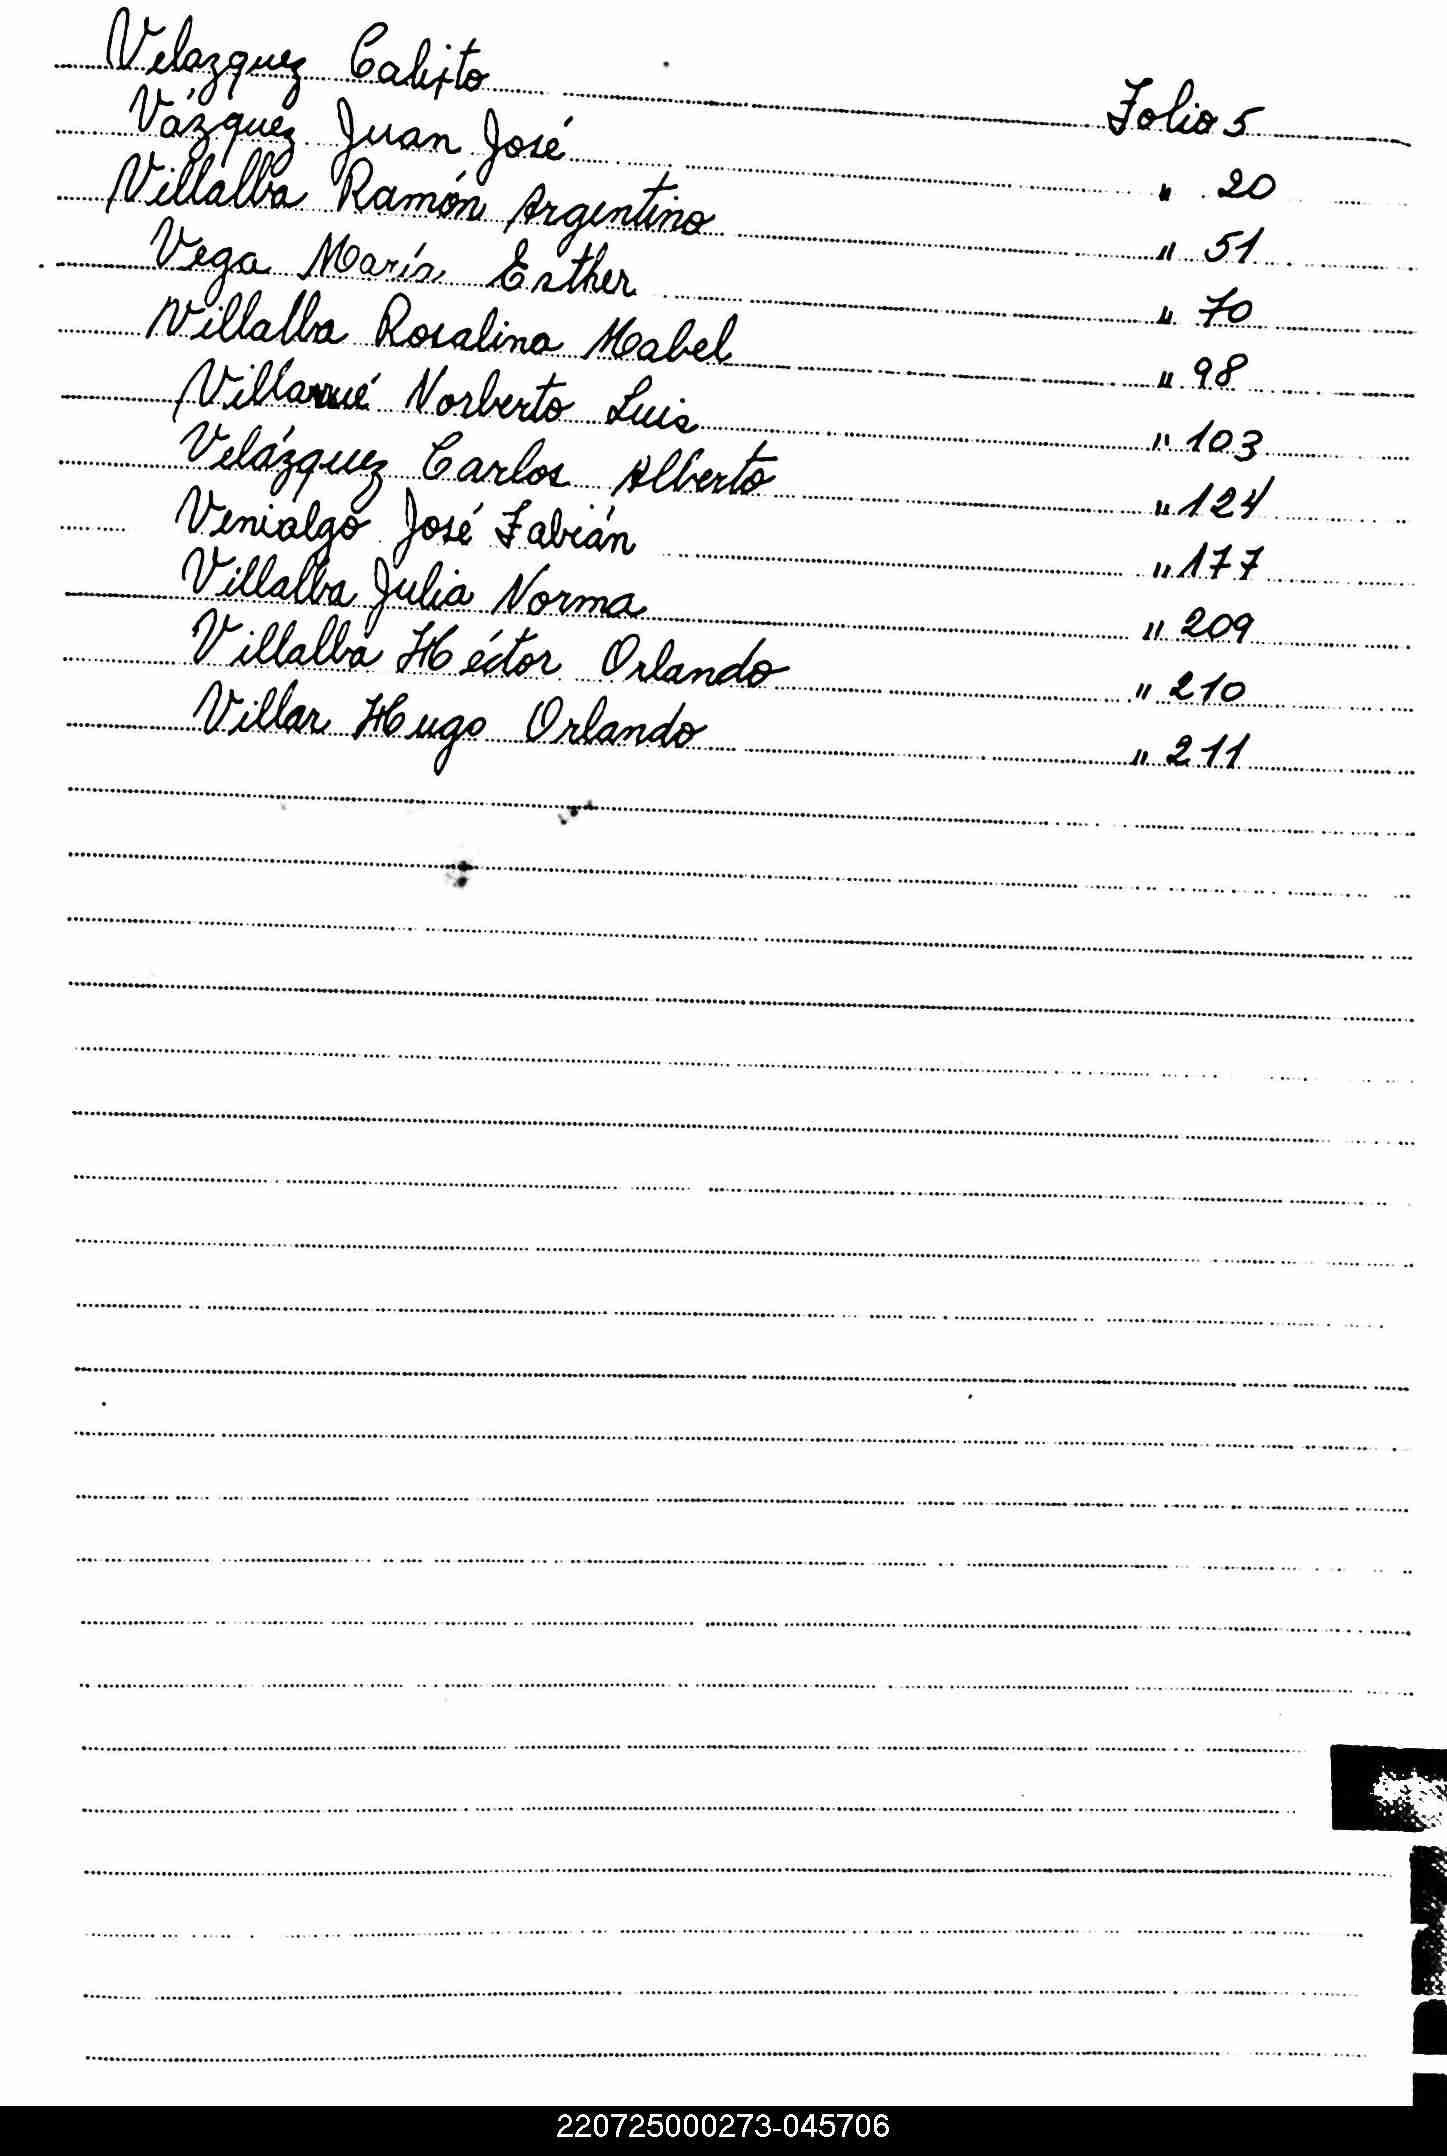 Velazquez Calixto Folio 5
Vázquez Juan José " 20
Villalba Ramón Argentino " 51
Vega María Esther " 70
Villalba Rosalina Mabel " 98
Norberto Luis " 103
Velázquez Carlos Alberto " 124
Venialgo José Fabián " 177
Villalba Julia Norma " 209
Villalba Héctor Orlando " 210
Villar Hugo Orlando " 211
220725000273-045706